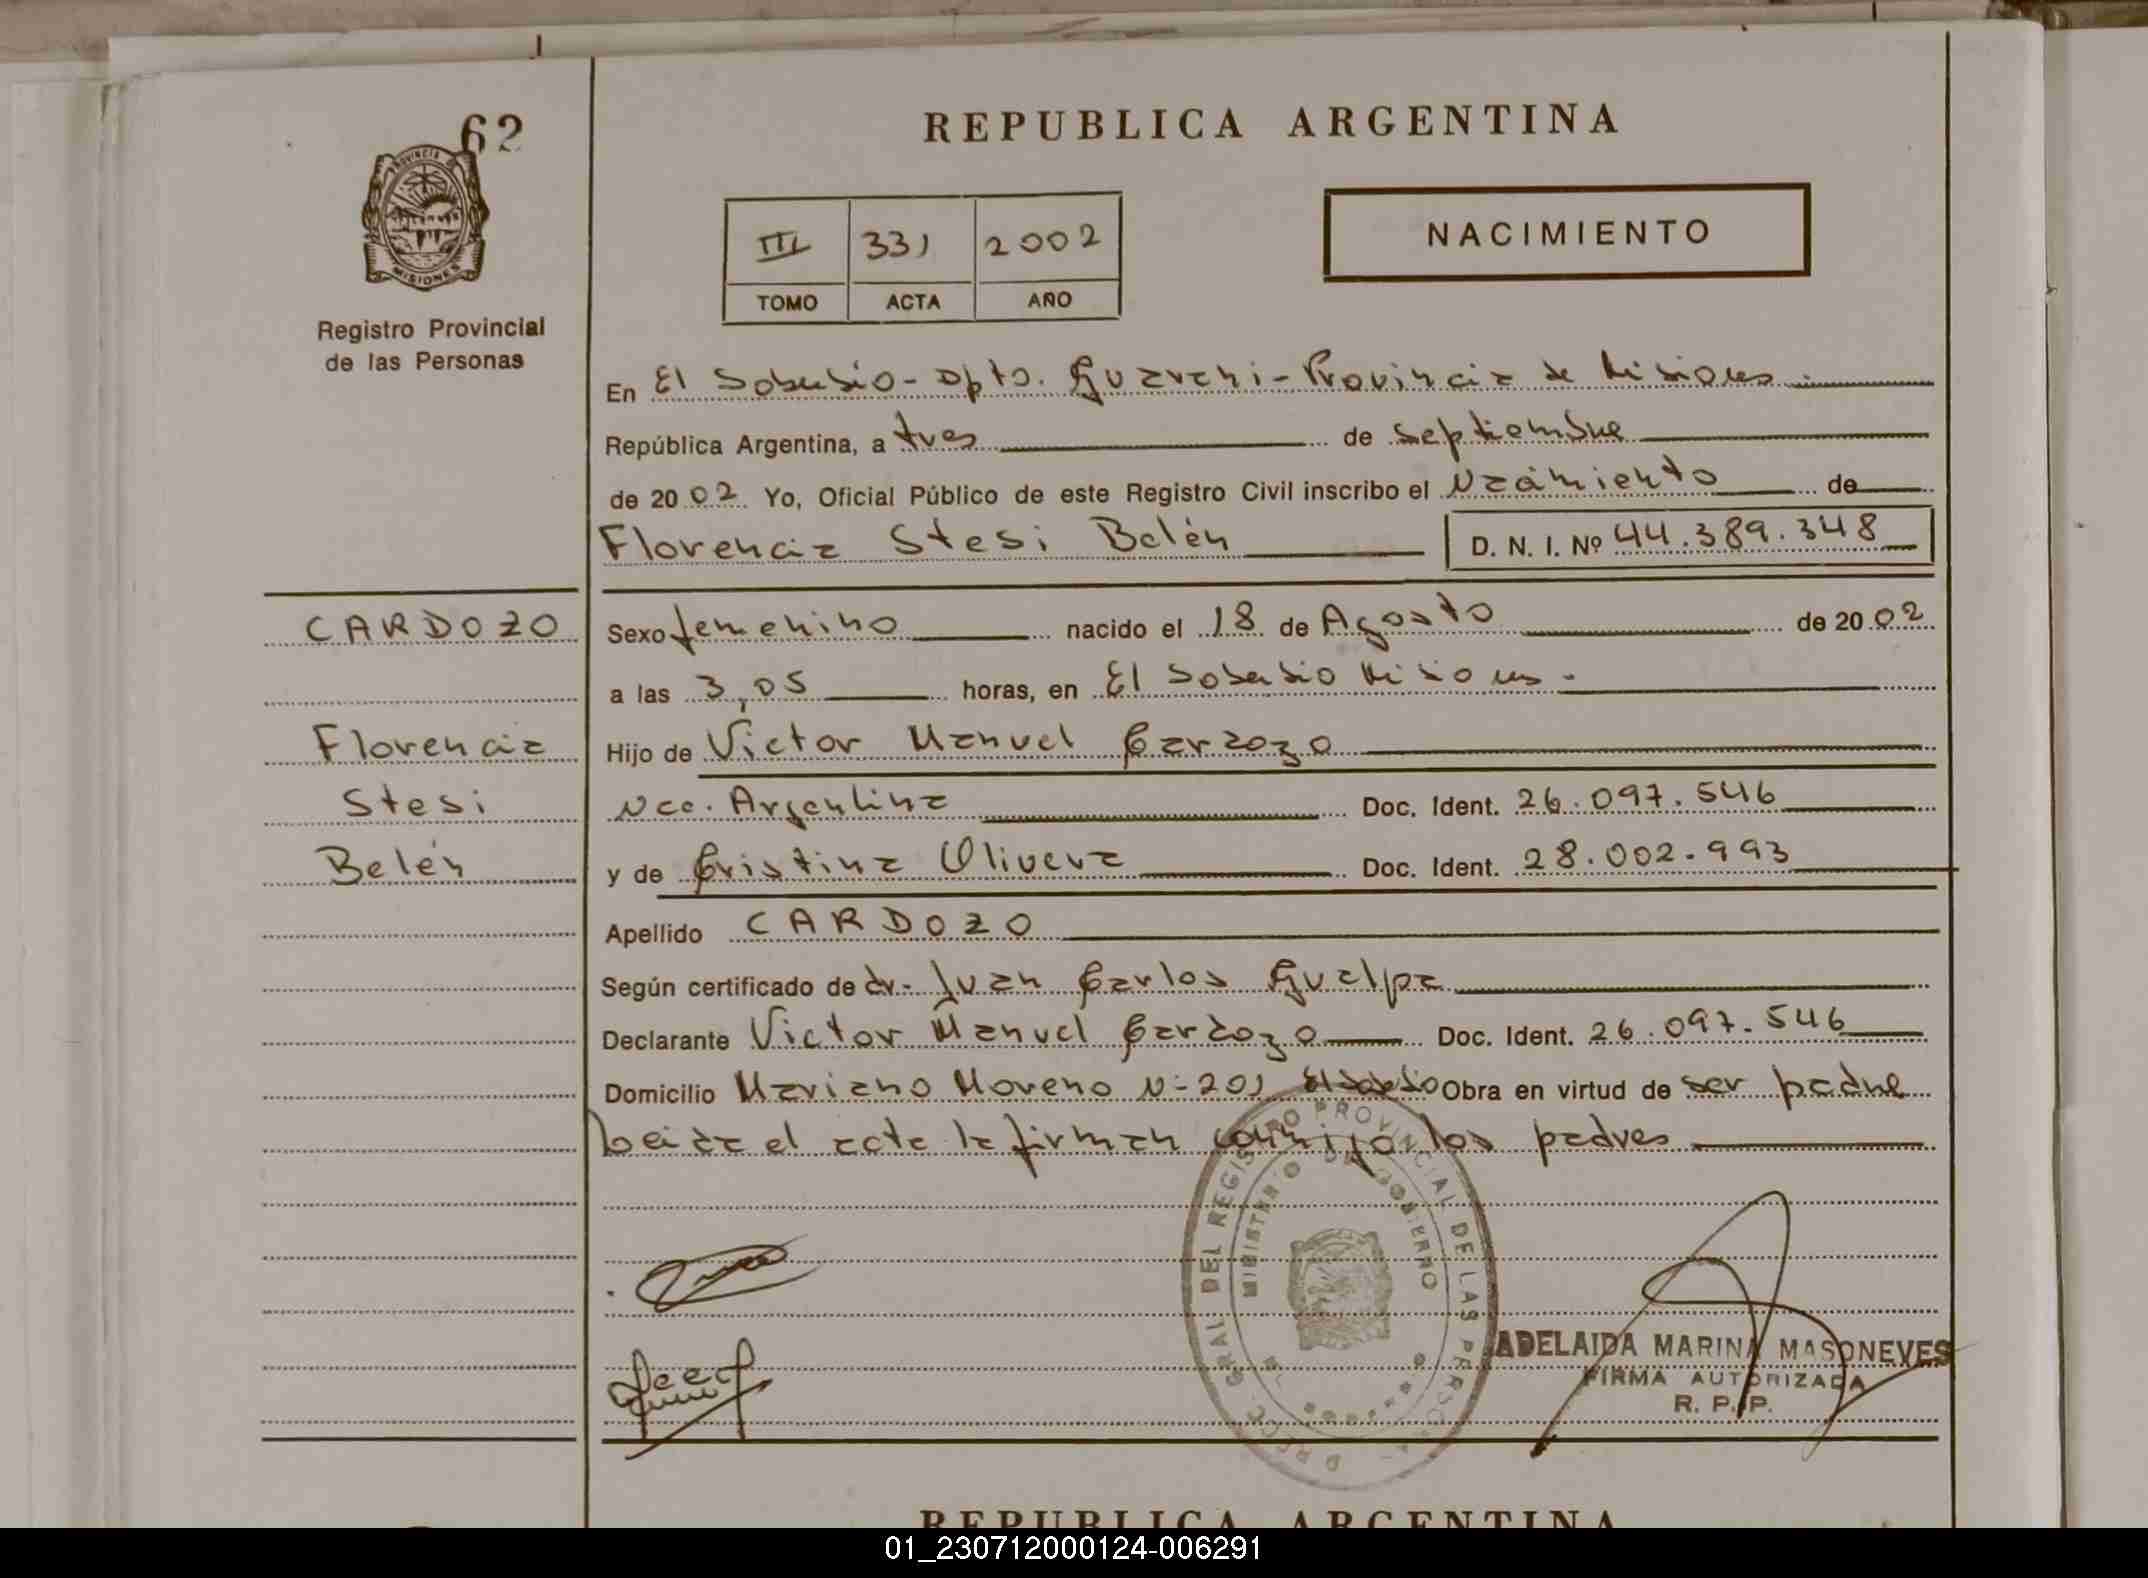 62
REPUBLICA ARGENTINA
PROVINCIA DE MISIONES
Registro Provincial
de las Personas
III 331 2002
TOMO ACTA AÑO
NACIMIENTO
En El Soberbio - Dpto. Guarani - Provincia de Misiones
República Argentina, a tres de septiembre
de 2002 Yo, Oficial Público de este Registro Civil inscribo el Nacimiento de
Florencia Stesi Belén D. N. I. Nº 44.389.348
CARDOZO
Florencia
Stesi
Belén
Sexo femenino nacido el 18 de Agosto de 2002
a las 3,05 horas, en El Soberbio Misiones.
Hijo de Victor Manuel Cardozo
Nac. Argentina Doc. Ident. 26.097.546
y de Cristina Olivera Doc. Ident. 28.002.993
Apellido CARDOZO
Según certificado de dr. Juan Carlos Guelpa
Declarante Victor Manuel Cardozo Doc. Ident. 26.097.546
Domicilio Mariano Moreno Nº 201 El Soberbio Obra en virtud de ser padre
Leida el acta la firman conmigo los padres
DIRECC. GRAL DEL REGISTRO PROVINCIAL DE LAS PERSONAS
MINISTERIO DE GOBIERNO
ADELAIDA MARINA MASONEVES
FIRMA AUTORIZADA
R. P. P.
REPUBLICA ARGENTINA
01_230712000124-006291